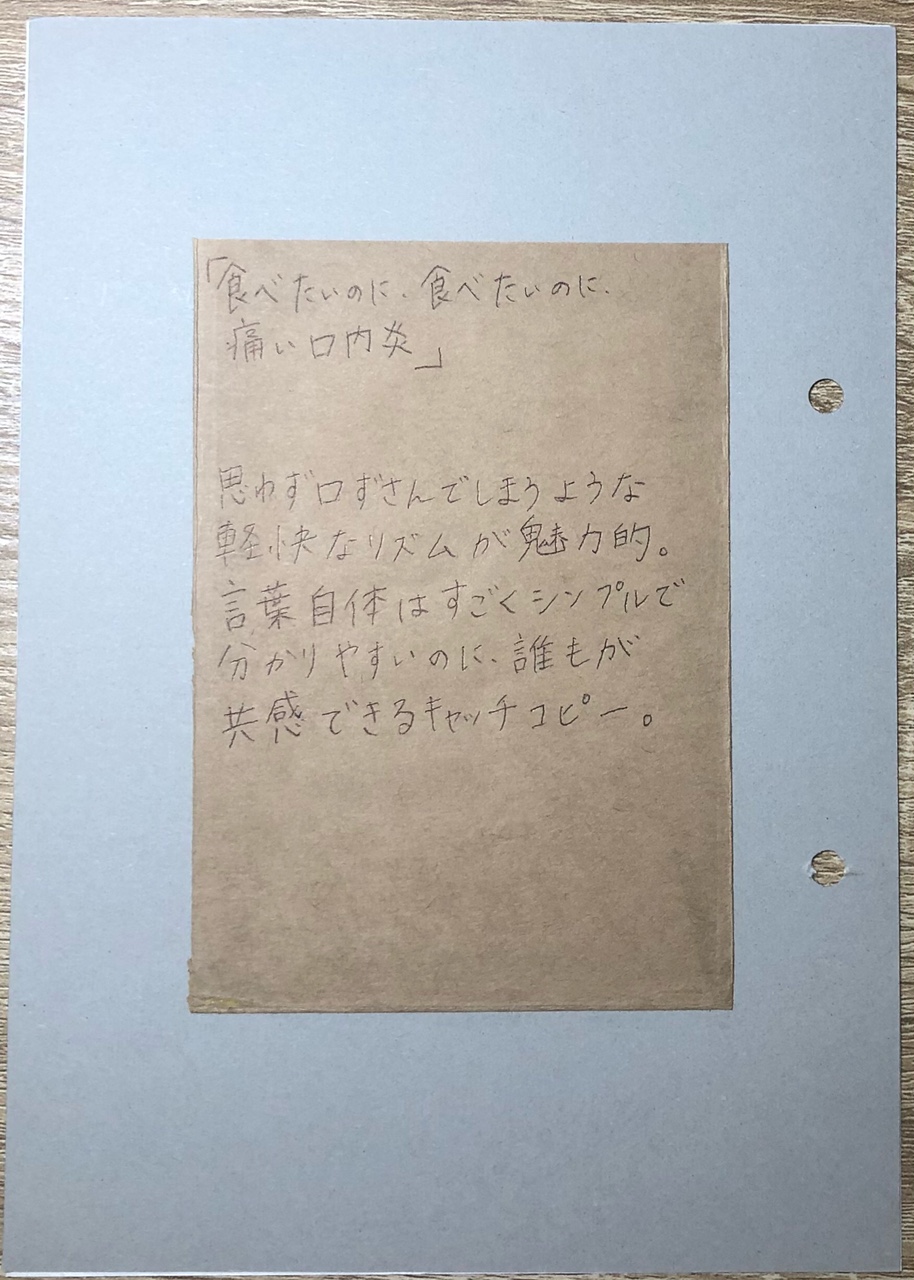 「食べたいのに、食べたいのに、
痛い口内炎」
思わず口ずさんでしまうような
軽快なリズムが魅力的。
言葉自体はすごくシンプルで
分かりやすいのに、誰もが
共感できるキャッチコピー。